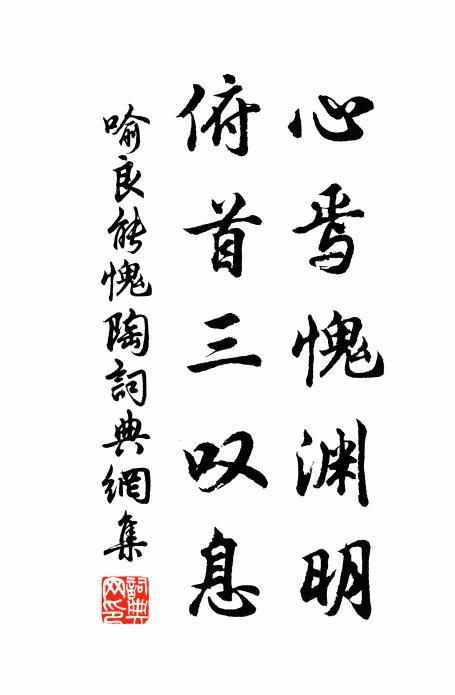 心焉愧渊明
俯首三叹息
喻良能愧陶詞典網集
詞典網印